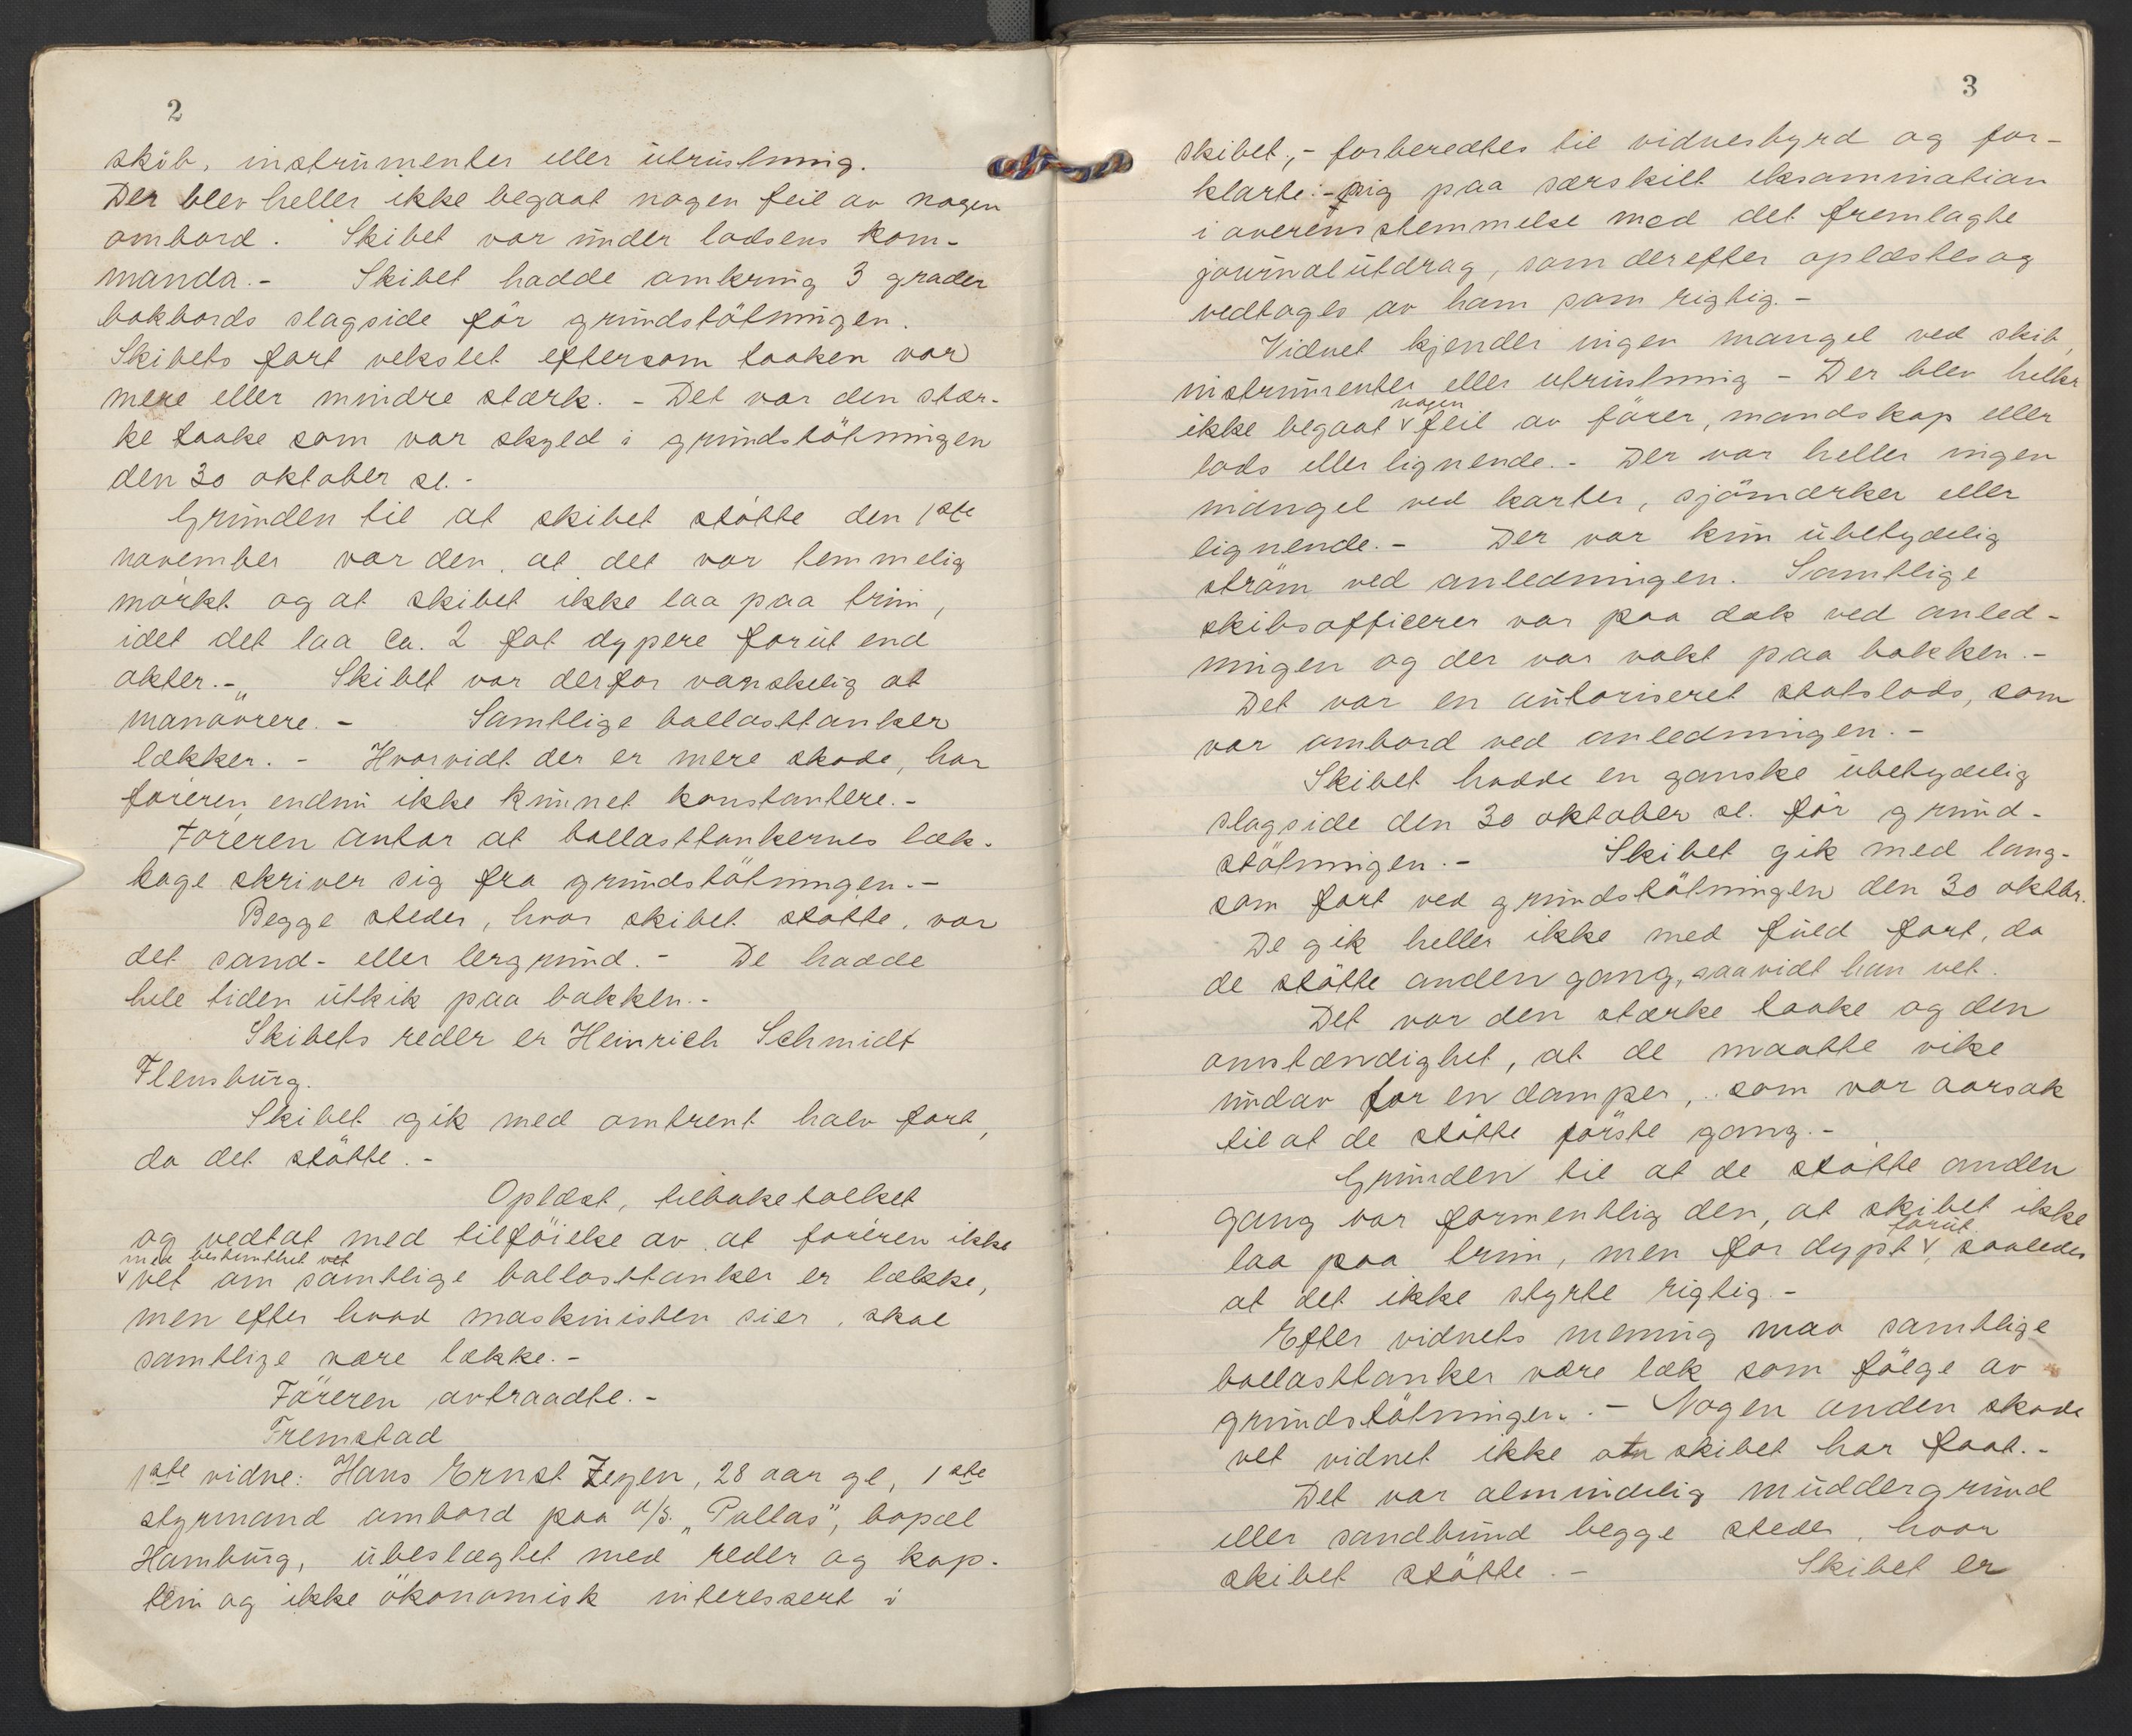 2
skib, instrümenter eller ütrüstning.
Der blev heller ikke begaat nogen feil av nogen
ombord. Skibet var ünder lodsens kom-
mando.- Skibet hadde omkring 3 grader
bakbords slagside för gründstötningen.
Skibets fart vekslet eftersom taaken var
mere eller mindre stærk. - Det var den stær-
ke taake som var skyld i gründstötningen
den 30 oktober sl.-
Gründen til at skibet stötte den 1ste
november var den, at det var temmelig
mörkt og at skibet ikke laa paa trim,
idet det laa ca. 2 fot dypere forüt end
akter.- Skibet var derfor vanskelig at
manövrere. - Samtlige ballasttanker
lækker. - Hvorvidt der er mere skade, har
föreren endnü ikke künnet konstantere.-
Föreren antar at ballasttankernes læk-
kage skriver sig fra gründstötningen.-
Begge steder, hvor skibet stötte, var
det sand- eller lergründ. - De hadde
hele tiden ütkik paa bakken.-
Skibets reder er Heinrich Schmidt
Flensbürg.
Skibet gik med omtrent halv fart,
da det stötte.-
Oplæst, tilbaketolket
og vedtat med tilföielse av at föreren ikke
med bestemthet vet
v vet om samtlige ballasttanker er lække,
men efter hvad maskinisten sier, skal
samtlige være lække.-
Föreren avtraadte.-
Fremstod
1ste vidne: Hans Ernst Zegen, 28 aar gl, 1ste
styrmand ombord paa d/s. „Pallas", bopæl
Hambürg, übeslægtet med reder og kap-
tein og ikke ökonomisk interessert i
3
skibet,- forberedtes til vidnesbyrd og for-
klarte:- sig paa særskilt eksammination
i overensstemmelse med det fremlagte
joürnalütdrag, som derefter oplæstes og
vedtoges av ham som rigtig.-
Vidnet kjender ingen mangel ved skib,
instrümenter eller utrüstning - Der blev heller
nogen
ikke begaat v feil av förer, mandskap eller
lods eller lignende.- Der var heller ingen
mangel ved karter, sjömærker eller
lignende.- Der var kün übetydelig
ström ved anledningen. Samtlige
skibsofficerer var paa dæk ved anled-
ningen og der var vakt paa bakken.-
Det var en aütoriseret statslods, som
var ombord ved anledningen.-
Skibet hadde en ganske übetydelig
slagside den 30 oktober sl. för gründ-
stötningen.- Skibet gik med lang-
som fart ved gründstötningen den 30 oktbr.
De gik heller ikke med füld fart, da
de stötte anden gang, saavidt han vet.
Det var den stærke taake og den
omstændighet, at de maatte vike
ündav for en damper, som var aarsak
til at de stötte förste gang.-
Gründen til at de stötte anden
gang var formentlig den, at skibet ikke
forüt
laa paa trim, men for dypt v, saaledes
at det ikke styrte rigtig.-
Efter vidnets mening maa samtlige
ballasttanker være læk som fölge av
gründstötningen.- Nogen anden skade
vet vidnet ikke om skibet har faat.-
Det var almindelig müddergründ
eller sandbünd begge steder, hvor
skibet stötte.- Skibet er